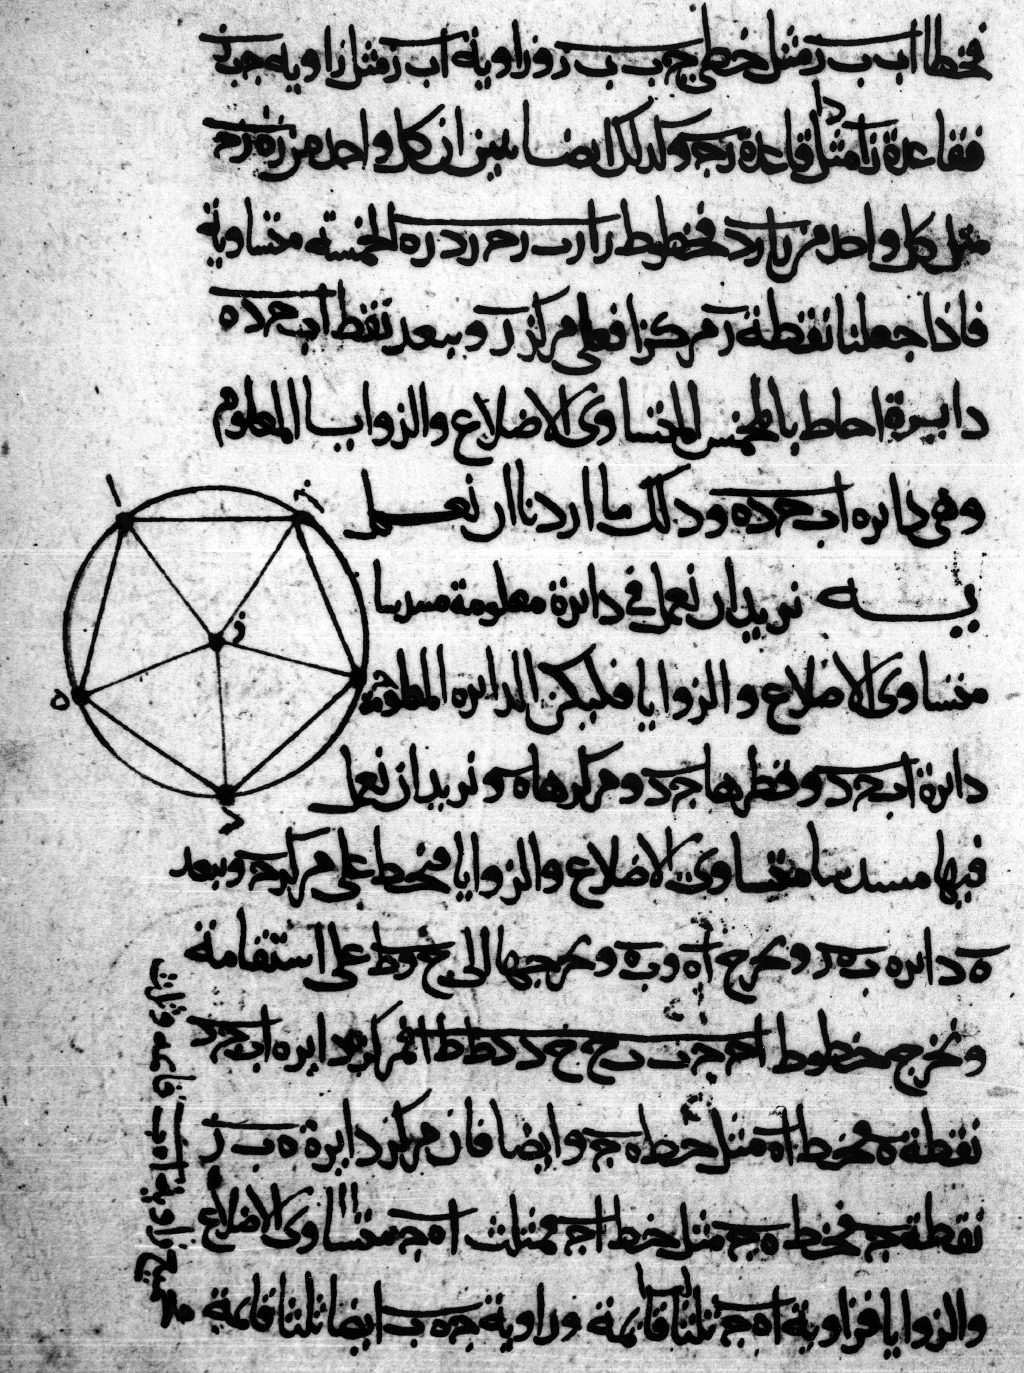 فخطا اب ب ز مثل خطي جـ ب ب ز وزاوية اب ز مثل زاوية جـ ب ز
فقاعدة زا مثل قاعدة زجـ وكذلك ايضا نبين ان كل واحد من زه زجـ
مثل كل واحد من زا زد فخطوط زا زب زجـ زد زه الخمسة متساوية
فاذا جعلنا نقطة ز مركزا فعلى مركز ز وببعد نقط اب جـ د ه
دايرة احاط بالمخمس المتساوى الاضلاع والزوايا المعلوم
وهى دايره اب جـ د ه وذلك ما اردنا ان نعمل
يـه نريد ان نعمل في دائرة معلومة مسدسا
متساوى الاضلاع والزوايا فليكن الدائره المعلومة
دائرة اب جـ د وقطرها جـ د ومركزها ه ونريد ان نعمل
فيها مسدسا متساوى الاضلاع والزوايا فنخط على مركز جـ وببعد
جـ ه دايره ب ه ز ونخرج اه وب ه ونخرجهما الى ح وط على استقامة
ونخرج خطوط اجـ جـ ب ب ح ح د د ط ط ا فمركز دايره اب جـ د
نقطة ه فخط اه مثل خط ه جـ وايضا فان مركز دايرة ه ب ز
نقطة جـ فخط ه جـ مثل خط اجـ فمثلث اه جـ متساوى الاضلاع
والزوايا فزاوية اه جـ ثلثا قائمة وزاوية جـ ه ب ايضا ثلثا قائمة
ا
ز
ه
د